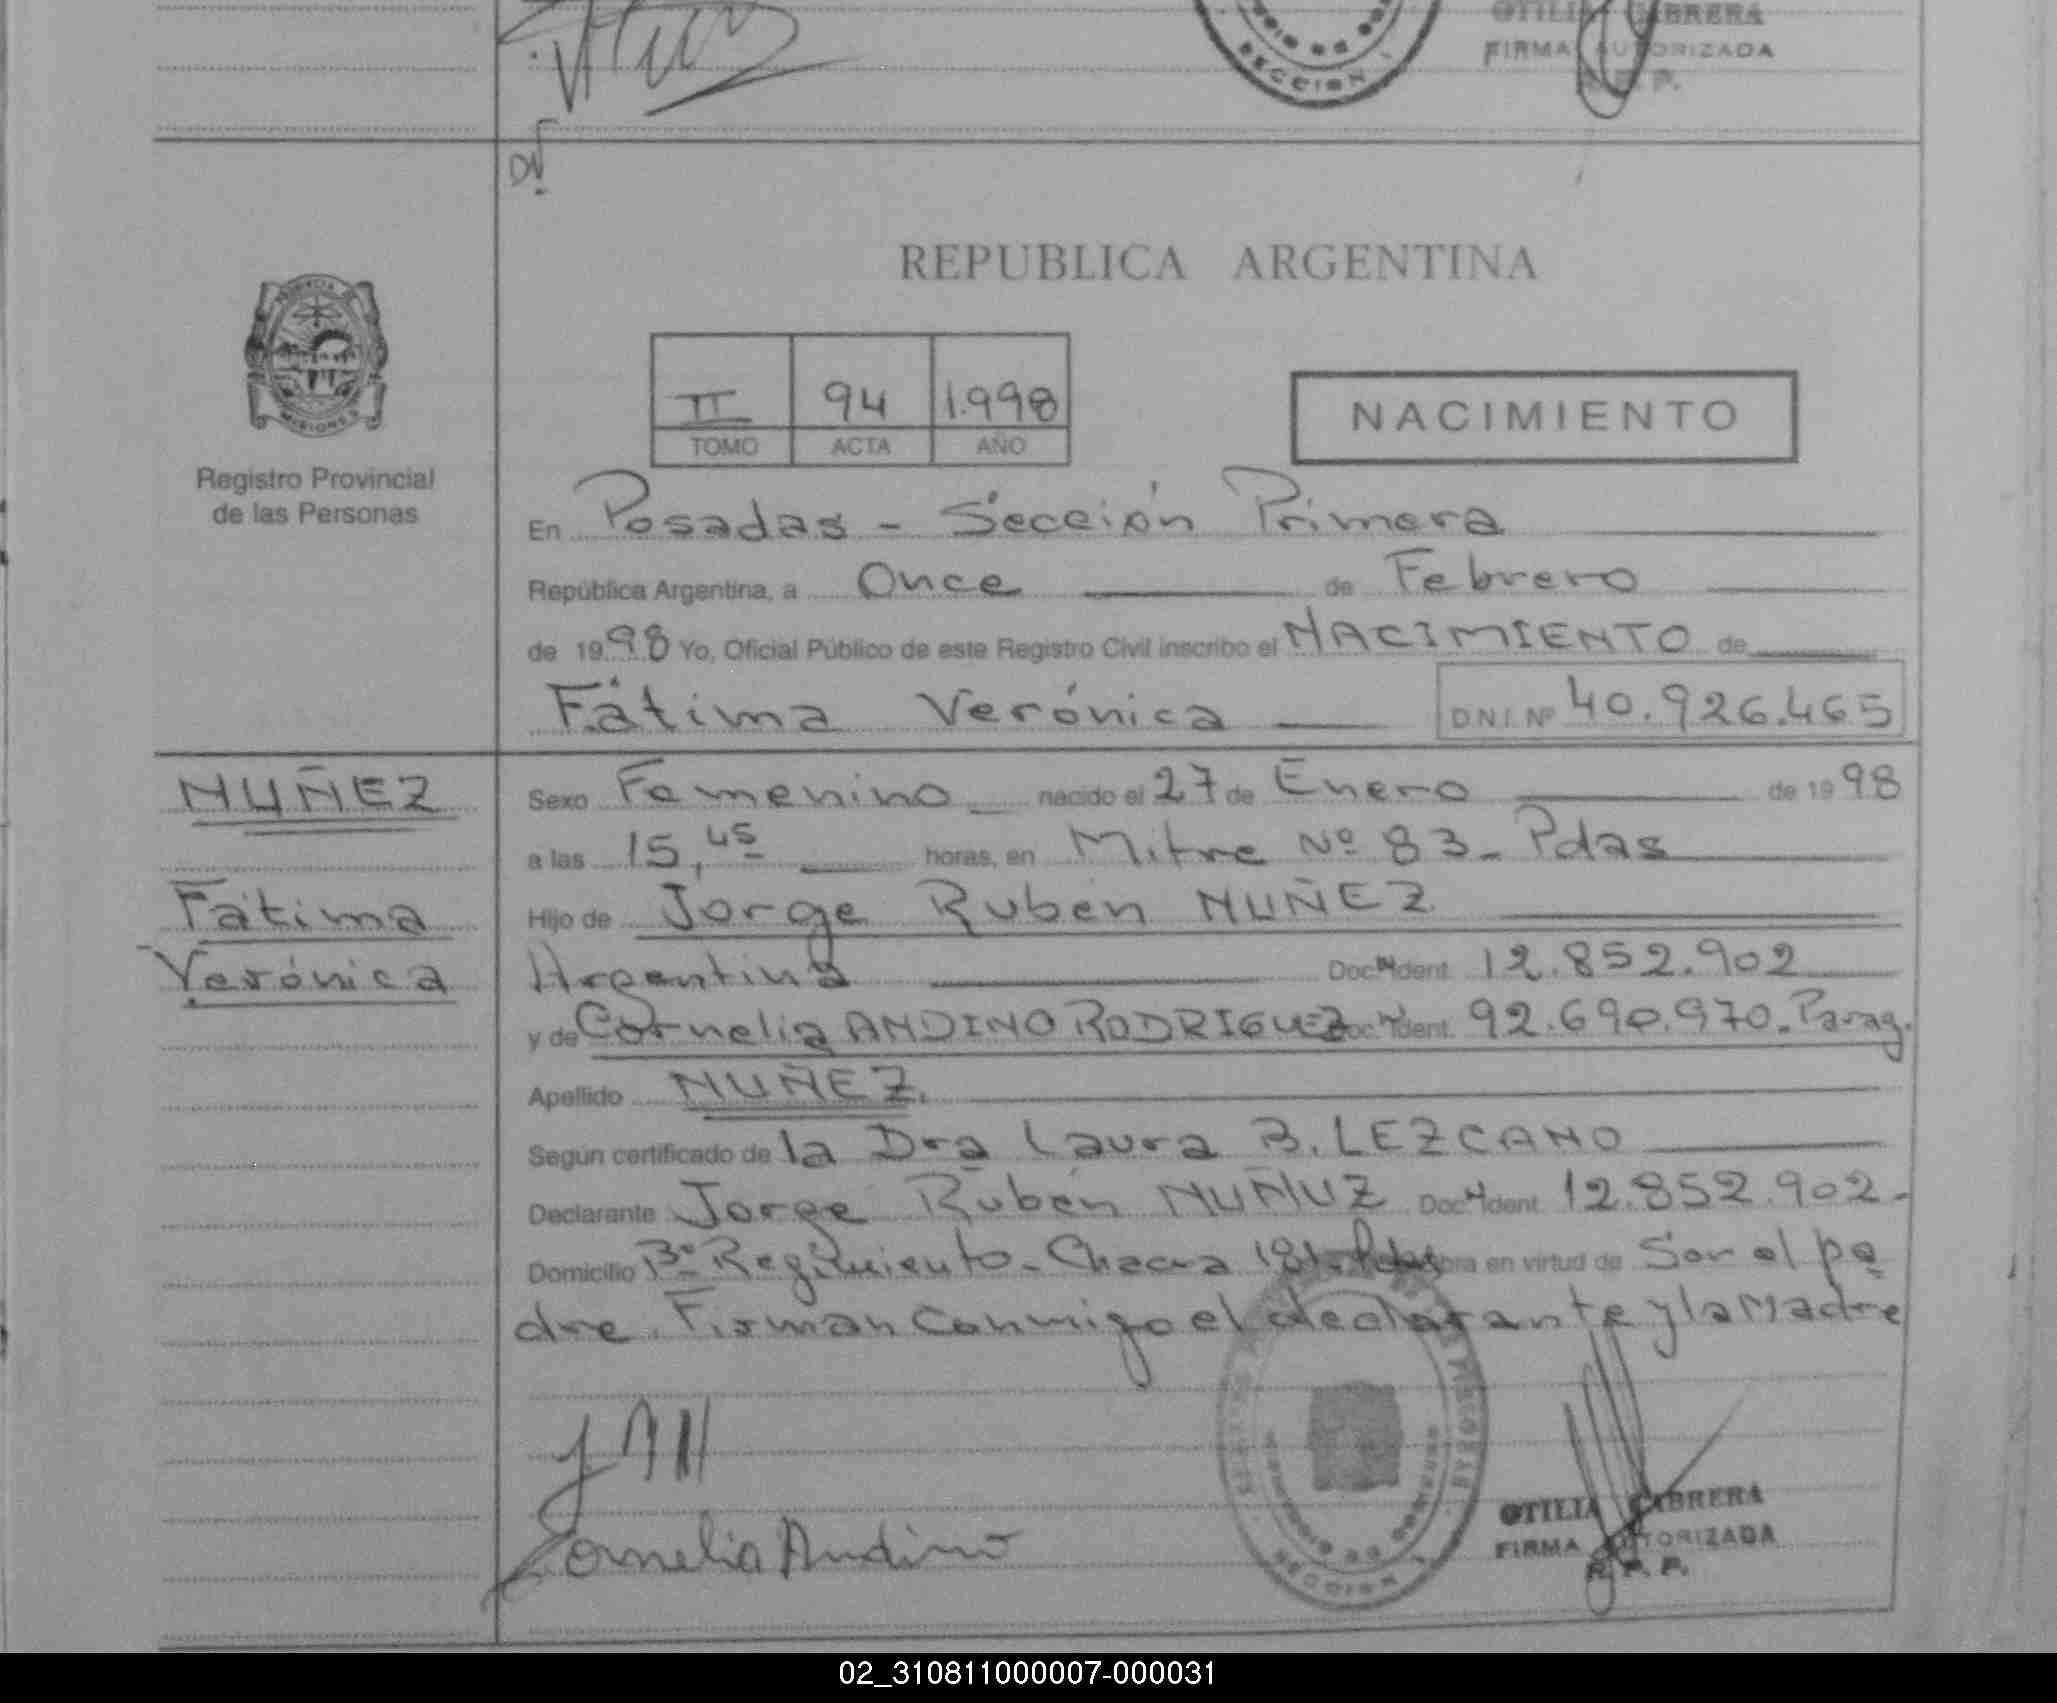 OTILIA CABRERA
FIRMA AUTORIZADA
R. P. P.
SECCION 1
REPUBLICA ARGENTINA
II 94 1.998
TOMO ACTA AÑO
NACIMIENTO
MISIONES
Registro Provincial
de las Personas
En Posadas - Sección Primera
República Argentina, a Once de Febrero
de 1998 Yo, Oficial Público de este Registro Civil inscribo el NACIMIENTO de
Fátima Verónica D.N.I. Nº 40.926.465
NUÑEZ
Fátima
Verónica
Sexo Femenino nacido el 27 de Enero de 1998
a las 15,45 horas, en Mitre Nº 83 - Pdas
Hijo de Jorge Rubén NUÑEZ
Argentina Doc. Ident. 12.852.902
y de Cornelia ANDINO RODRIGUEZ Doc. Ident. 92.690.970. Parag.
Apellido NUÑEZ.
Según certificado de la Dra Laura B. LEZCANO
Declarante Jorge Rubén NUÑUZ Doc. Ident. 12.852.902-
Domicilio Bº Regimiento - Chacra 181 - Pdas obra en virtud de Ser el pa
dre. Firman conmigo el declarante y la Madre
Cornelia Andino
SECCION 1
OTILIA CABRERA
FIRMA AUTORIZADA
R. P. P.
02_310811000007-000031